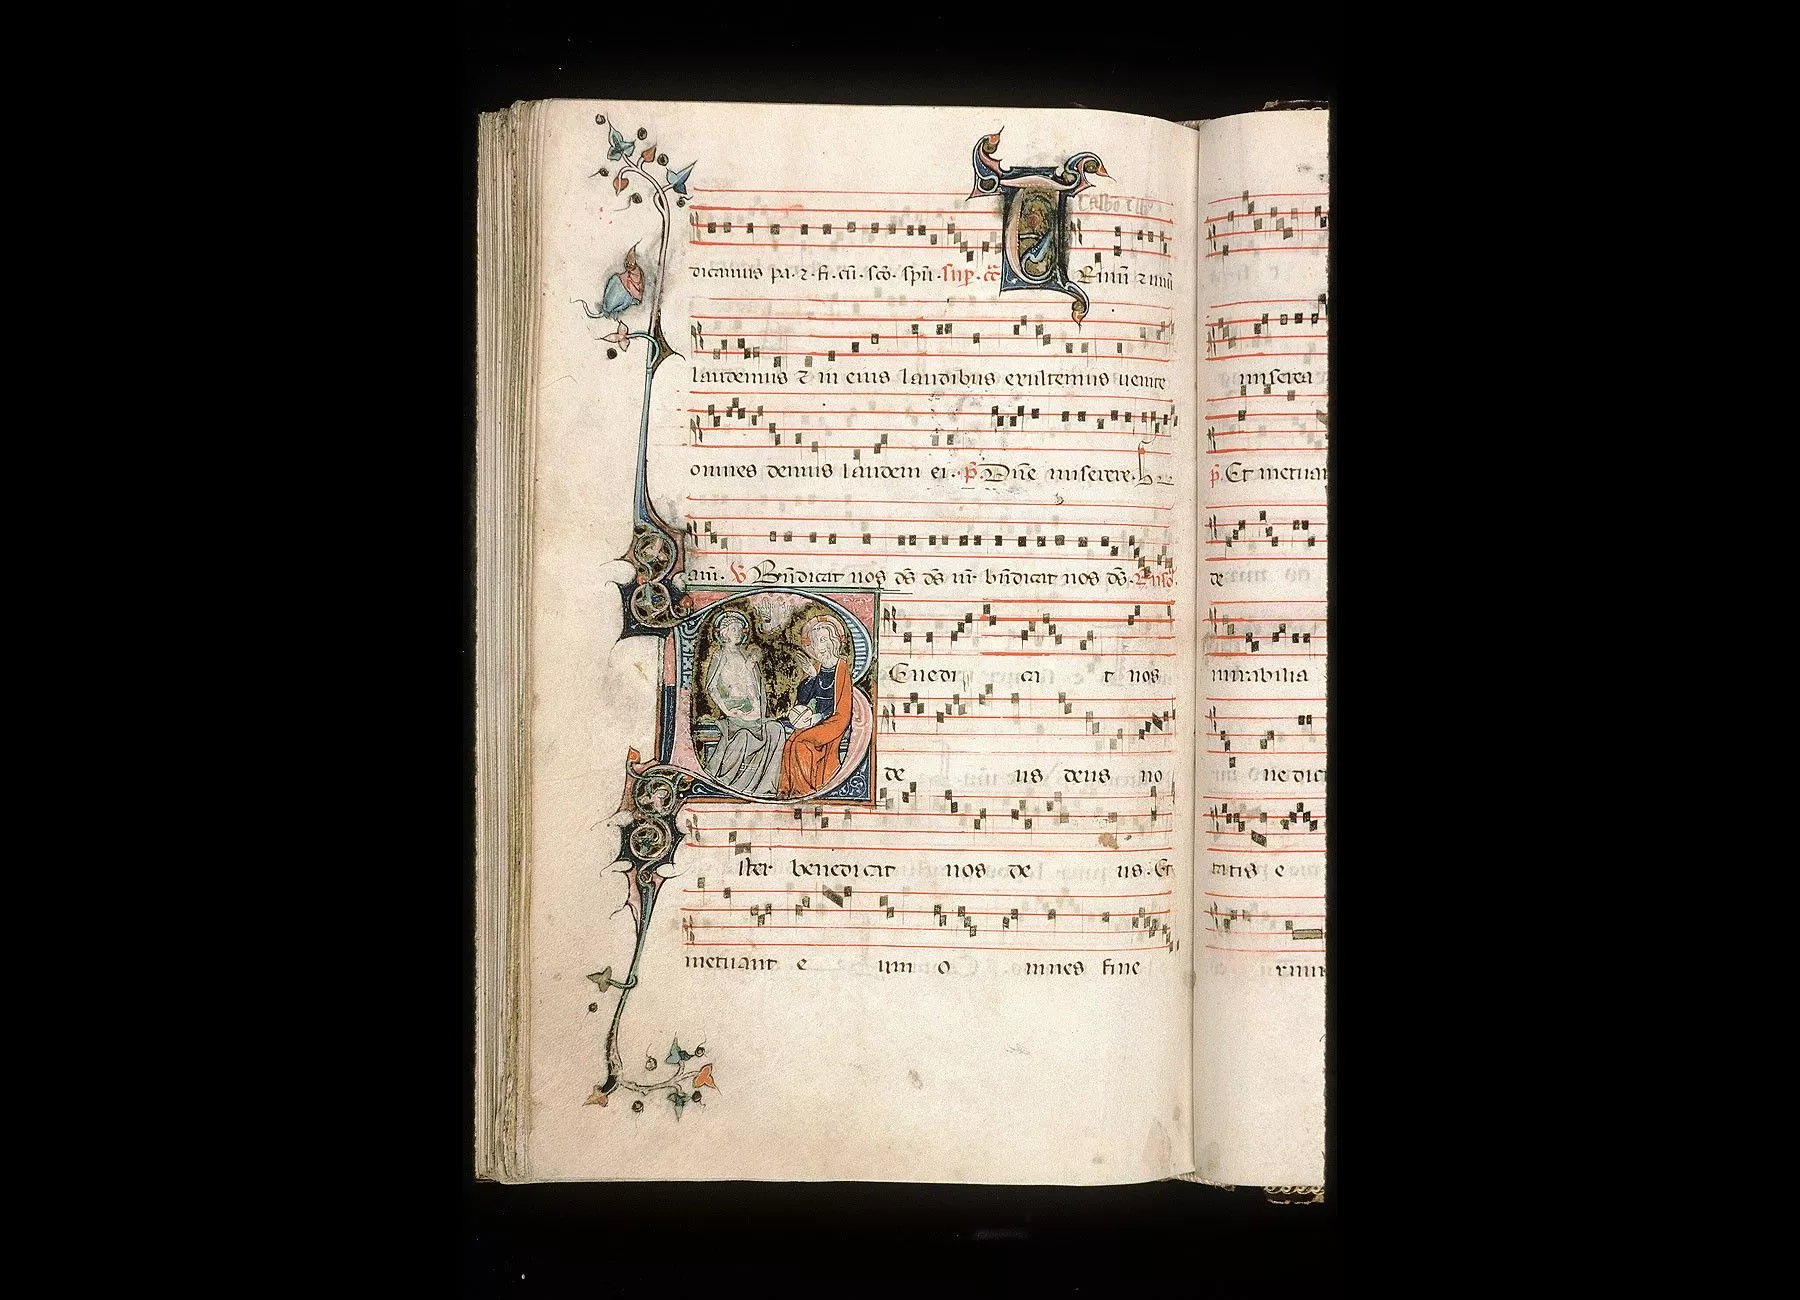 dicamus pa. ⁊ fi. cū. sc̄o. spū.
Rinū ⁊ unū
laudemus ⁊ in eius laudibus exultemus uenite
omnes demus laudem ei. p̄. Dn̄e miserere.
am. V Bn̄dicat nos ds̄ ds̄ nr̄ bn̄dicat nos ds̄.
Benedi ca t nos
de us deus no
ster benedicat nos de us. Et
metuant e um o mnes fine
miserea
p̄. Et metuan
de
mirabilia
nedict
tatis e